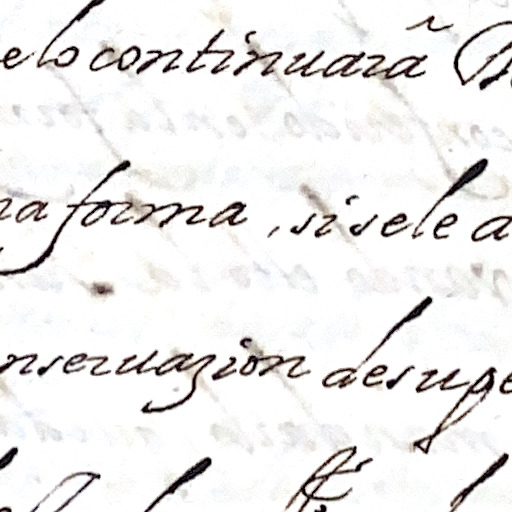 elo continuarã
na forma, si sele a
nseruazion desupe